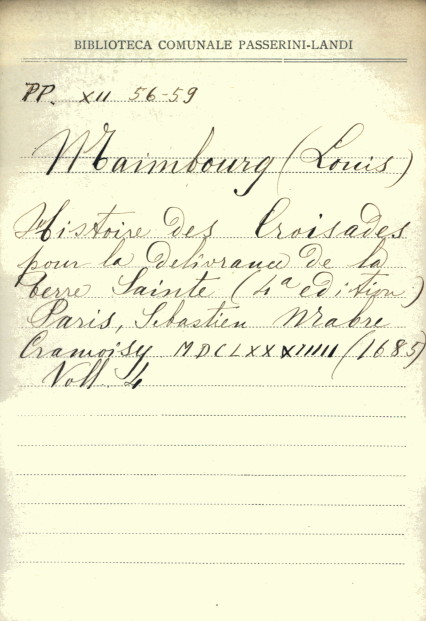 BIBLIOTECA COMUNALE PASSERINI-LANDI
PP. XII 56-59
Maimbourg (Louis)
Histoire des Croisades
pour la delivrance de la
terre Sainte (4a edition)
Paris, Sebastien Mabre
Cramoisy (1685)
Voll. 4